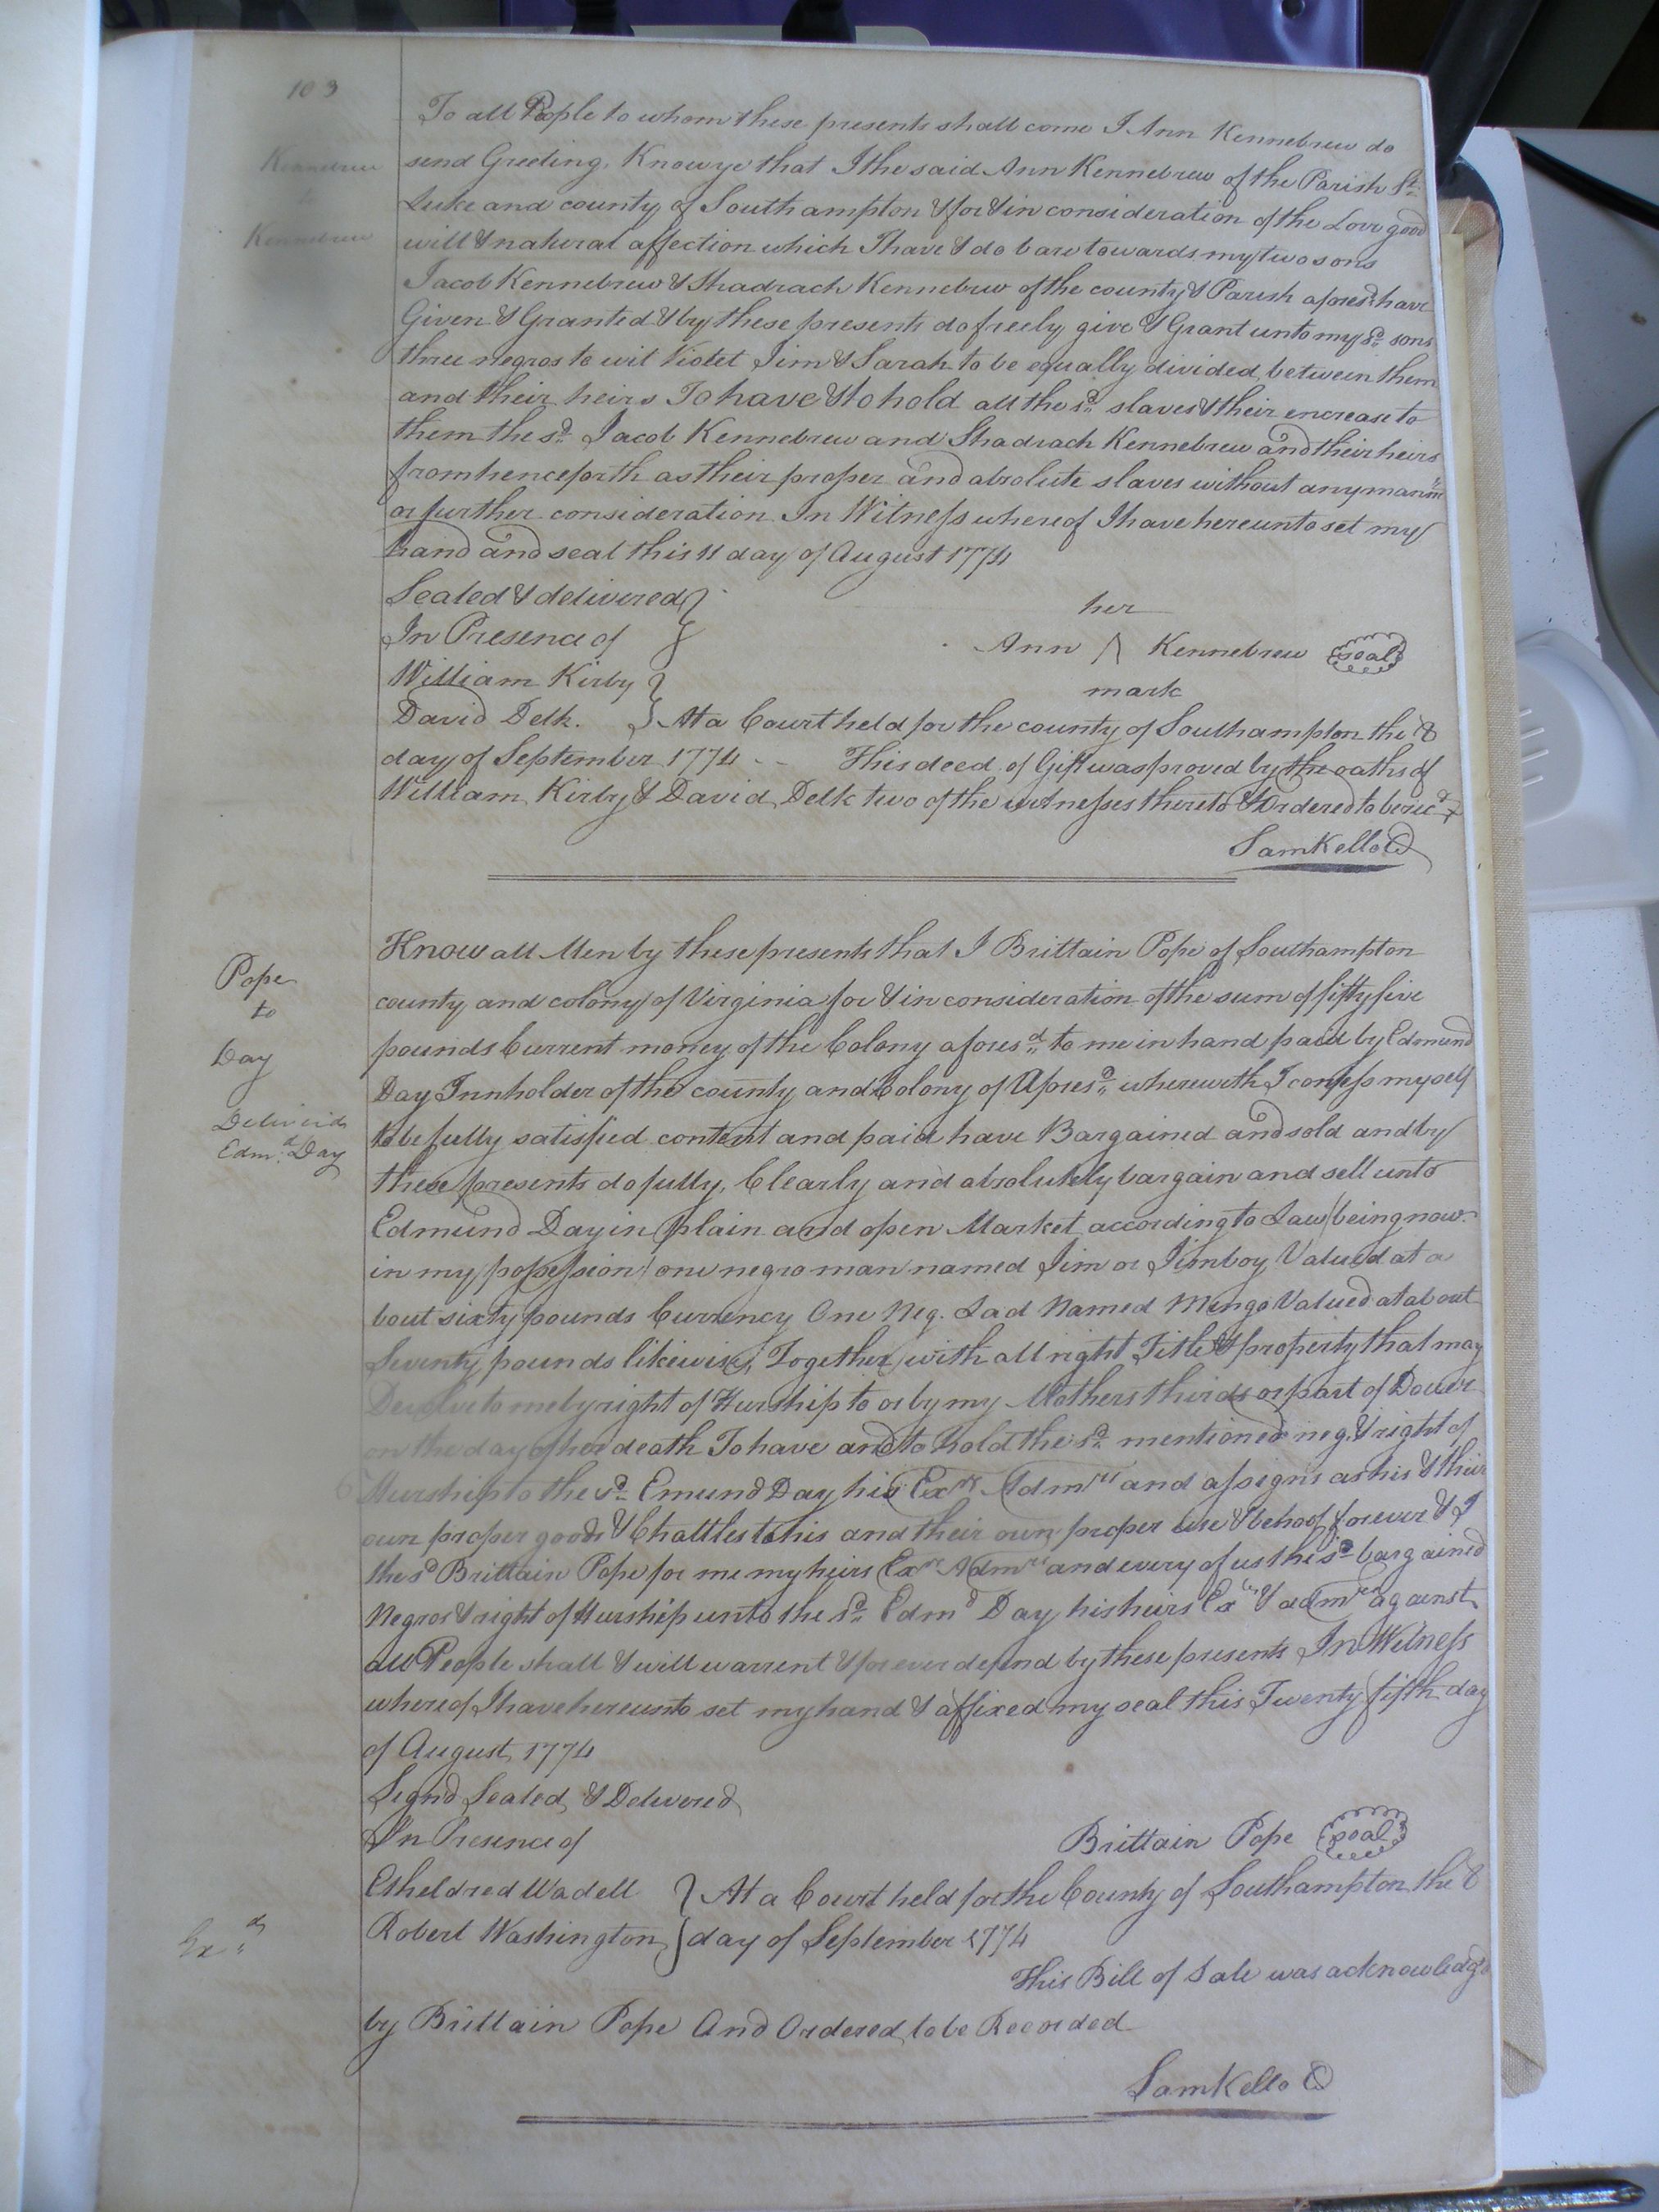 103
To all People to whom these presents shall come I Ann Kennebrew do
Kennebrew
send Greeting. Know ye that I the said Ann Kennebrew of the Parish St.
to
Luke and county of Southampton & for & in consideration of the Love good
Kennebrew
will & natural affection which I have & do bare towards my two sons
Jacob Kennebrew & Shadrach Kennebrew of the county & Parish aforesd. have
Given & Granted & by these presents do freely give & Grant unto my sd. sons
three negros to wit Violet Jim & Sarah to be equally divided between them
and their heirs To have & to hold all the sd. slaves & their encrease to
them the sd. Jacob Kennebrew and Shadrach Kennebrew and their heirs
from henceforth as their proper and absolute slaves without any mannr
or further consideration. In Witness whereof I have hereunto set my
hand and seal this 11 day of August 1774
Sealed & delivered }
her
In Presence of }
Ann Λ Kennebrew seal
William Kirby }
mark
David Delk. } At a Court held for the county of Southampton the 8
day of September 1774 -- This deed of Gift was proved by the oaths of
William Kirby & David Delk two of the witnesses thereto & Ordered to be recd.
Sam Kello C
Know all Men by these presents that I Brittain Pope of Southampton
Pope
county and colony of Virginia for & in consideration of the sum of fifty five
to
pounds Current money of the Colony afores d. to me in hand paid by Edmund
Day
Day Innholder of the county and Colony of Afores d. wherewith I confess myself
Deliverd
to be fully satisfied content and paid have Bargained and sold and by
Edm.d Day
these presents do fully, Clearly and absolutely bargain and sell unto
Edmund Day in plain and open Market according to Law (being now
in my possession) one negro man named Jim or Jimboy Valued at a
bout sixty pounds Currency One Neg. Lad Named Mingo Valued at about
Seventy pounds likewise, Together with all right Title & property that may
Devolve to me by right of Hurship to or by my Mothers thirds or part of Dower
on the day of her death To have and to hold the sd. mentioned neg. & right of
Hurship to the sd. Emund Day his Exrs Admrs and assigns as his & their
own proper goods & Chattles to his and their own proper use & behoof forever & I
the sd Brittain Pope for me my heirs Exrs Admrs and every of us the sd bargained
Negros & right of Hurship unto the sd. Edmd Day, his heirs Exrs & admrs against
all People shall & will warrent & forever defend by these presents In Witness
whereof I have hereunto set my hand & affixed my seal this Twenty fifth day
of August 1774
Signd Sealed & Delivered
In Presence of
Brittain Pope seal
Etheldred Wadell } At a Court held for the County of Southampton the 8
Robert Washington } day of September 1774
Exd.
This Bill of Sale was acknowledgd
by Brittain Pope And Ordered to be Recorded
Sam Kello C